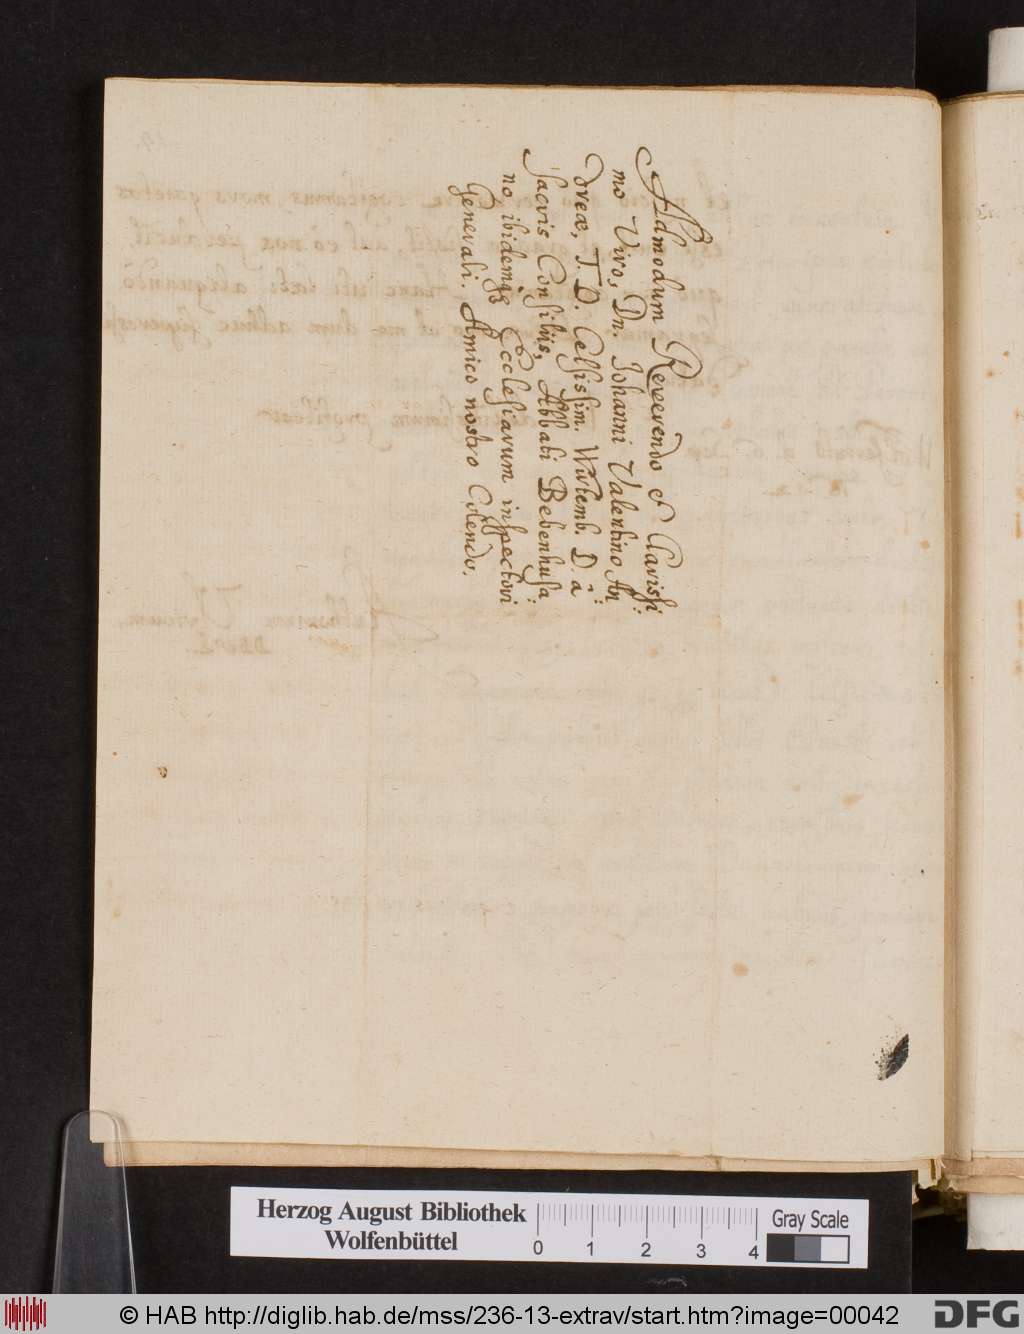 Admodum Reverendo & Clarissi:
mo Viro, Dn. Johanni Valentino An:
dreæ, T. D. Celsissim. Wirtemb. D. à
Sacris Consilijs, Abbati Bebenhusa:
no ibidemq; Ecclesiarum inspectori
Generali. Amico nostro Colendo.
Herzog August Bibliothek
Wolfenbüttel
0 1 2 3 4
Gray Scale
© HAB http://diglib.hab.de/mss/236-13-extrav/start.htm?image=00042
DFG